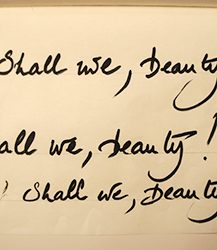 Shall we, Beauty
all we, Beauty!
! Shall we, Beauty